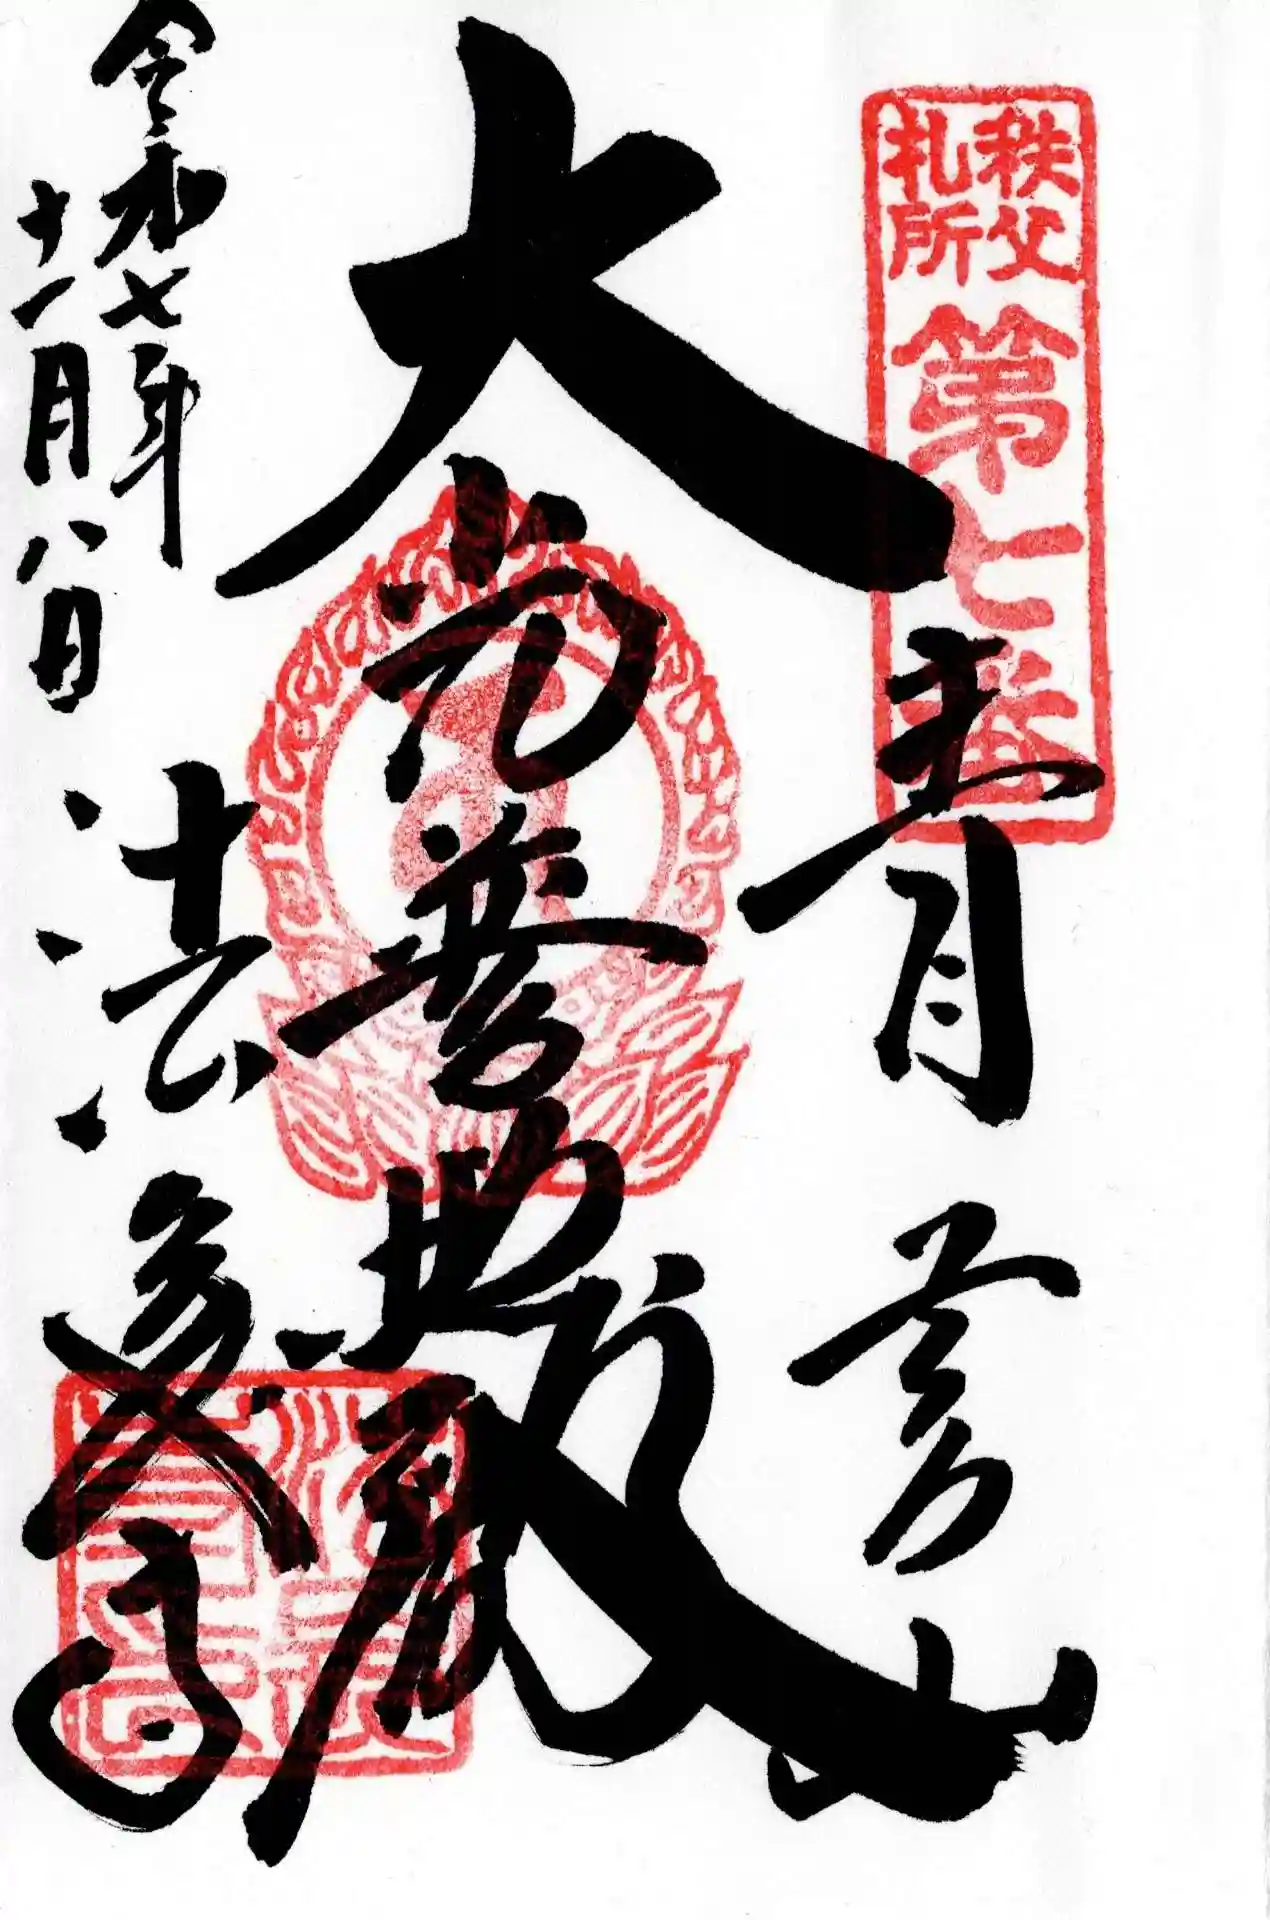 秩父
札所
第七番
青苔山
大光普照殿
法長寺
令和七年
十一月八日